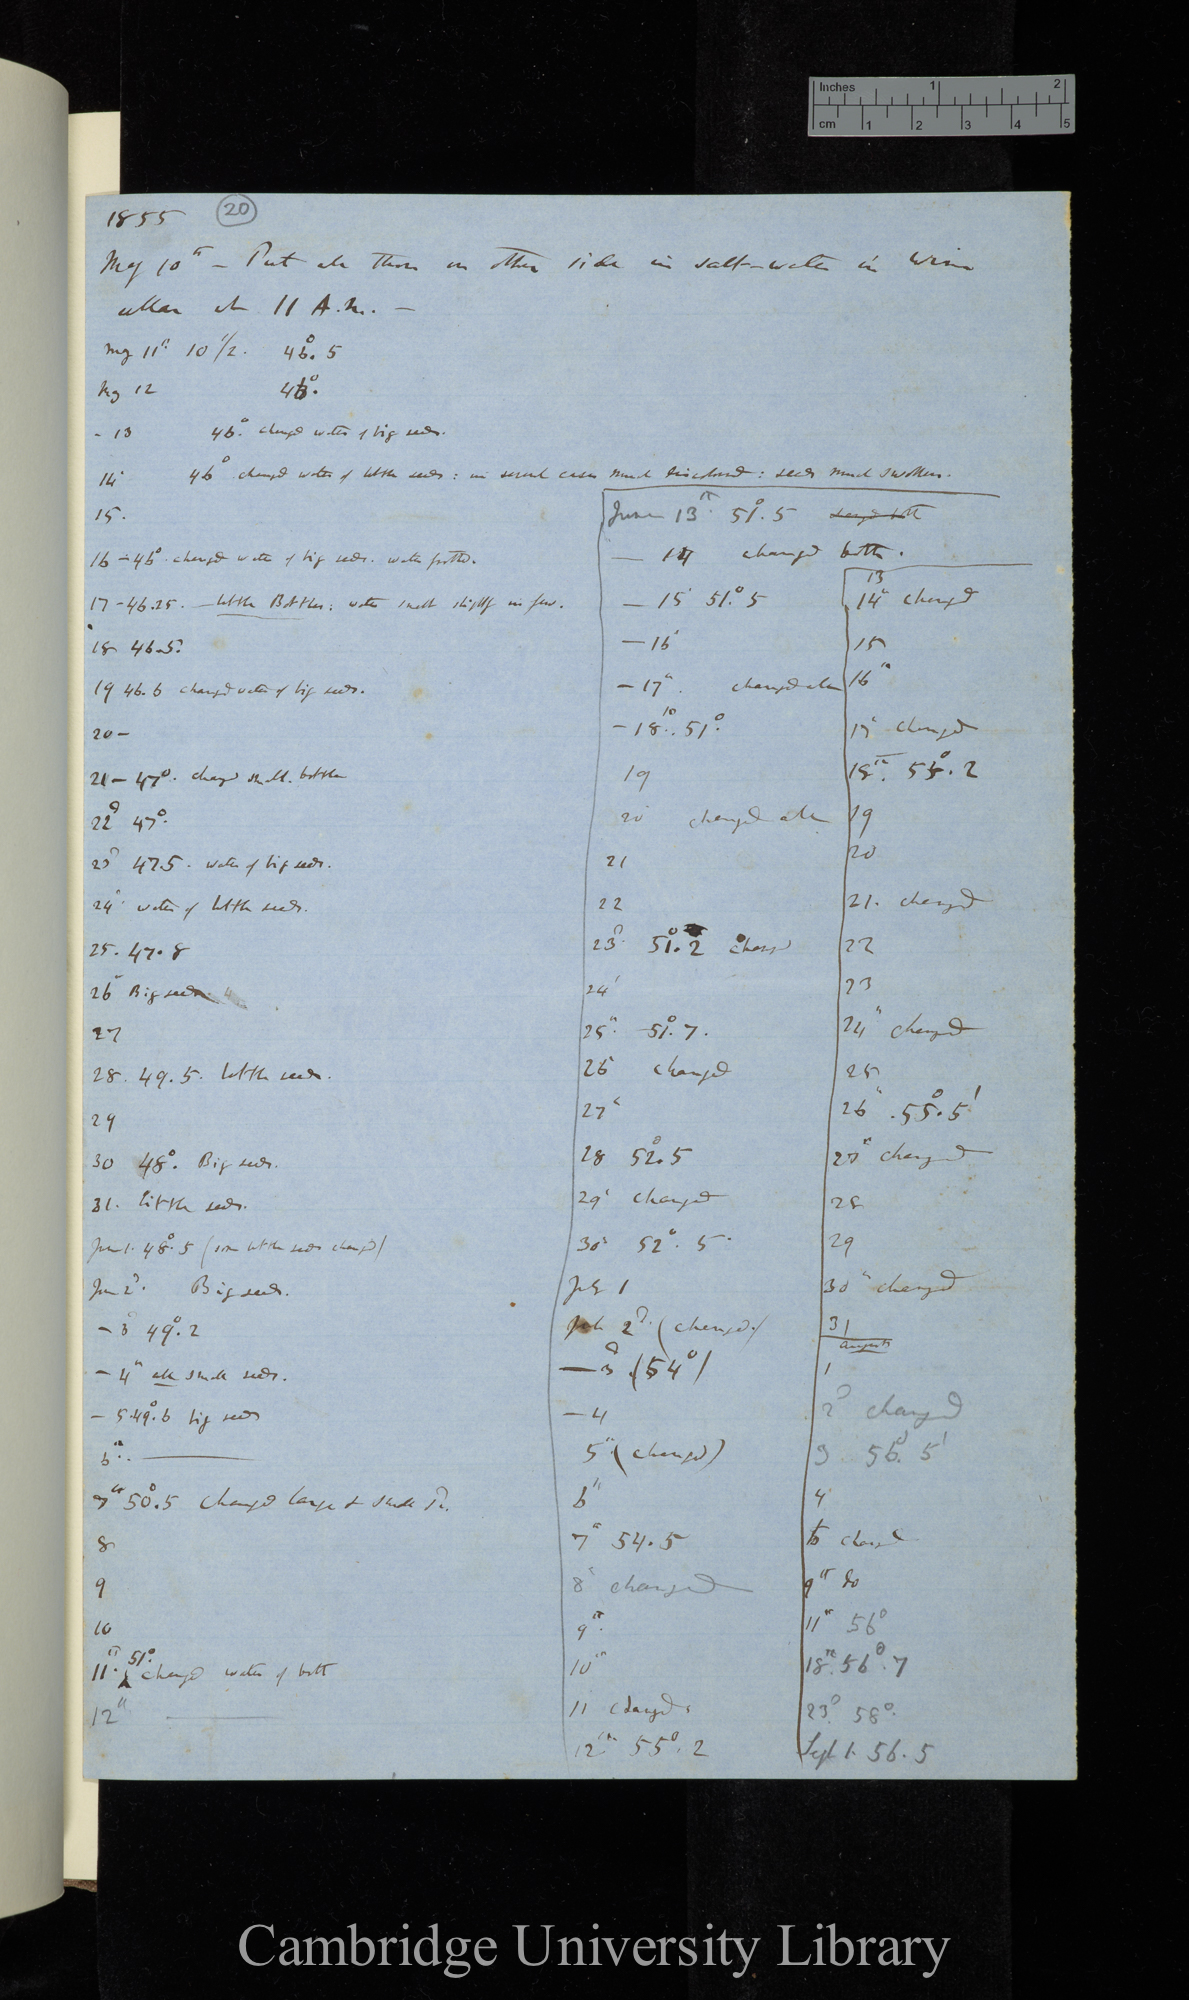 Inches 1 2
cm 1 2 3 4 5
1855 20
May 10th — Put all these on other side in salt-water in wine
cellar at 11 A.M. —
May 11th 10 1/2. 46°.5
May 12 46°.
- 13 46°. changed water of big seeds.
14 46° changed water of little seeds: in several cases much discoloured: seeds much swollen.
15.
16 – 46° changed water of big seeds. water frothed.
17 – 46.25. — little Bottles: water smelt slightly in few.
18 46.5°
19 46.6 changed water of big seeds.
20 –
21 – 47°. changed small bottles
22d 47°.
23d 47.5. water of big seeds.
24th water of little seeds.
25. 47.8
26th Big seeds
27
28. 49.5. little seeds.
29
30 48°. Big seeds.
31. little seeds.
June 1. 48°.5 (some little seeds changed)
June 2d. Big seeds.
– 3d 49°.2
– 4th all small seeds.
– 5 49°.6 big seeds
6th. ———
7th 50°.5 changed large & small
8
9
10
11th. 51°. changed water of both
12th ———
June 13th 51°.5
— 14 changed both.
— 15 51°.5
— 16
— 17th. changed all
— 18th. 51°.
19
20 changed all
21
22
23d 51°.2 changed
24
25th. 51°.7.
26 changed
27th
28 52°.5
29th changed
30th 52°.5
July 1
July 2d. (changed)
— 3d (54°)
— 4
5th (changed)
6th
7th 54.5
8th changed
9th.
10th
11 changed
12th 55°.2
13
14th changed
15
16th
17th changed
18th. 55°.2
19
20
21. changed
22
23
24th changed
25
26th .55°.5'
27th changed
28
29
30th changed
31
August
1
2d changed
3. 56°.5'
4
changed
9th do
11th 56°
18th. 56°.7
23d 58°.
Sept 1. 56.5
Cambridge University Library